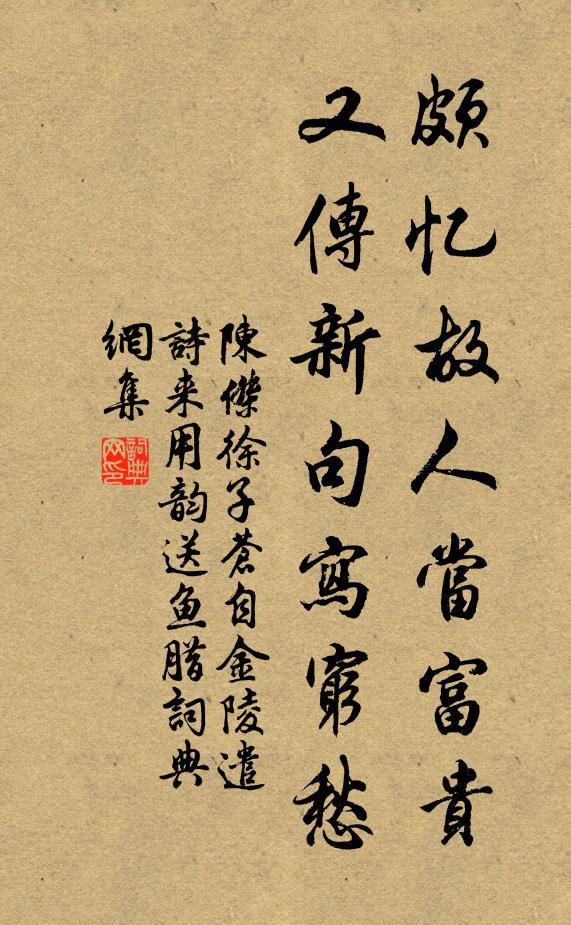 頗忆故人當富貴
又傳新句寫窮愁
陳傑徐子蒼自金陵遣
詩来用韵送鱼腊詞典
網集
詞典
网印